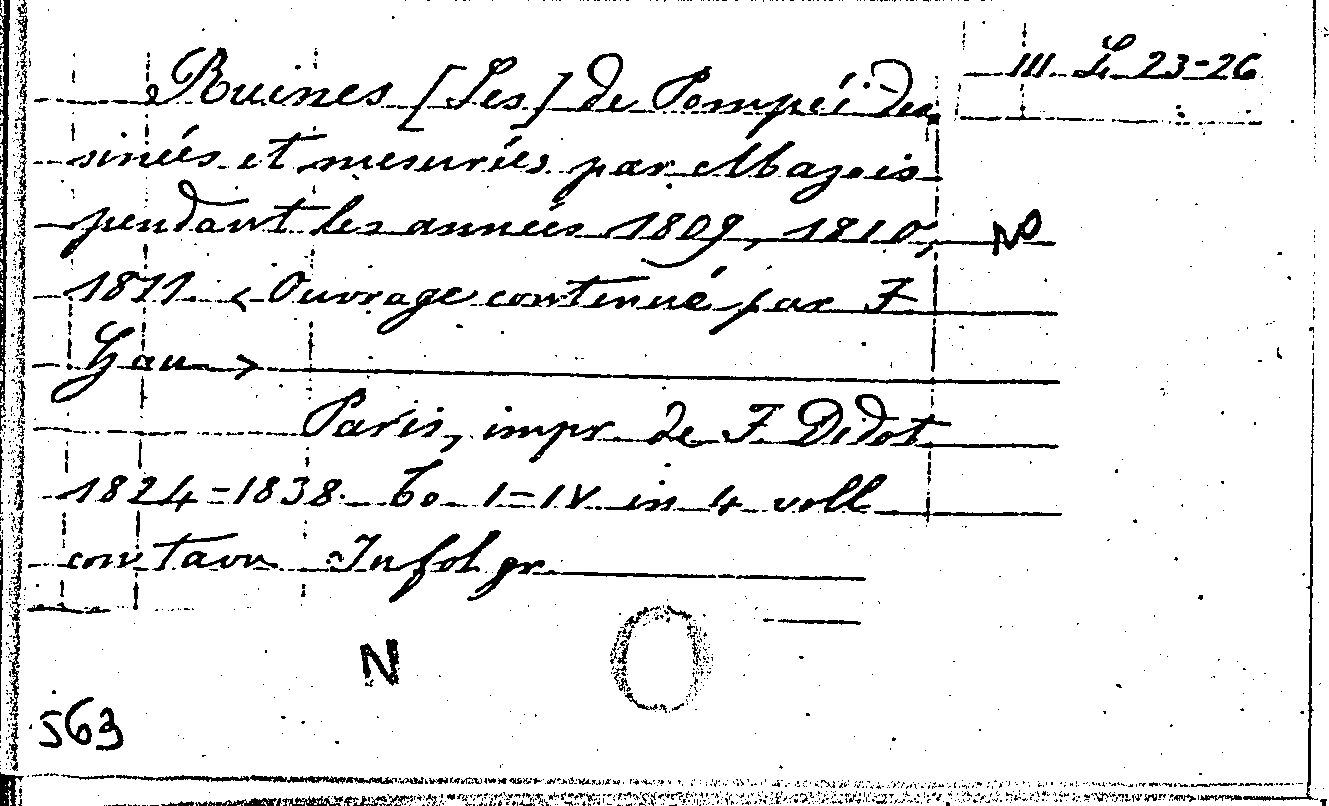 III. L. 23-26
Ruines [Les] de Pompéi des
sinées et mesurées par Mazois
pendant les années 1809, 1810,
No
1811. < Ouvrage continué par F
Gau >
Paris, impr. de F. Didot
1824=1838. To. I=IV in 4 voll
con tavv In fol gr.
N
563